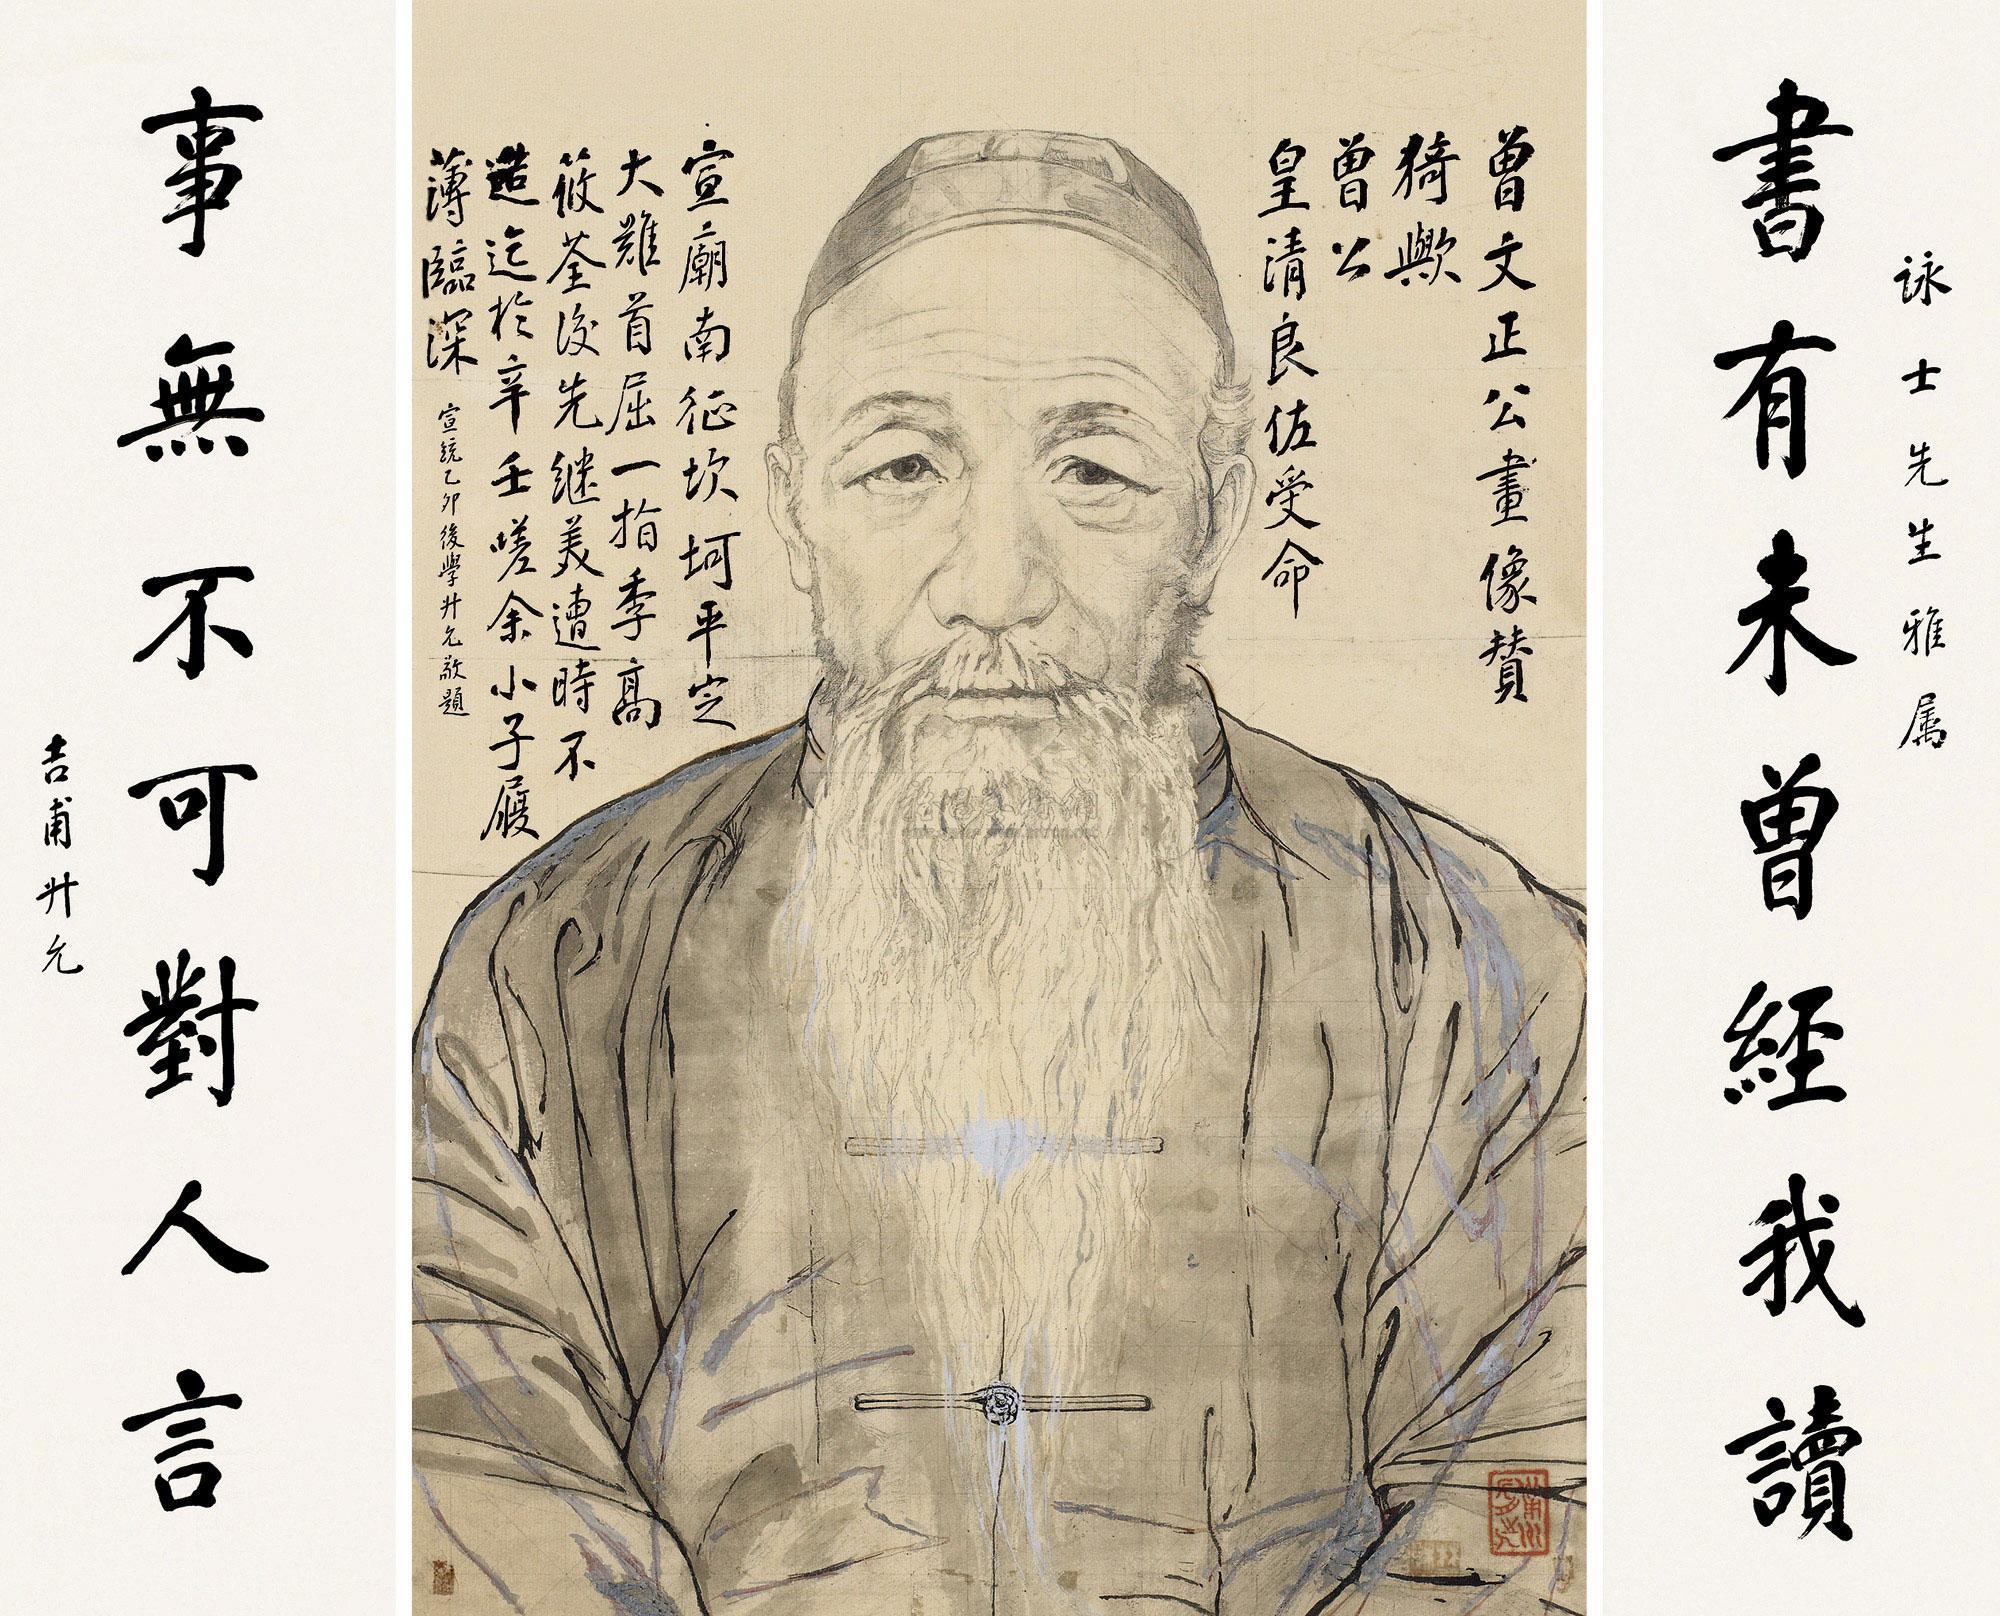 詠士先生雅属
書有未曾經我讀
曾文正公畫像贊
猗歟
曾公
皇清良佐受命
宣廟南征坎坷平定
大難首屈一指季高
莜荃後先継美遭時不
造迄於辛壬嗟余小子履
薄臨深
宣統乙卯後學升允敬題
事無不可對人言
吉甫升允